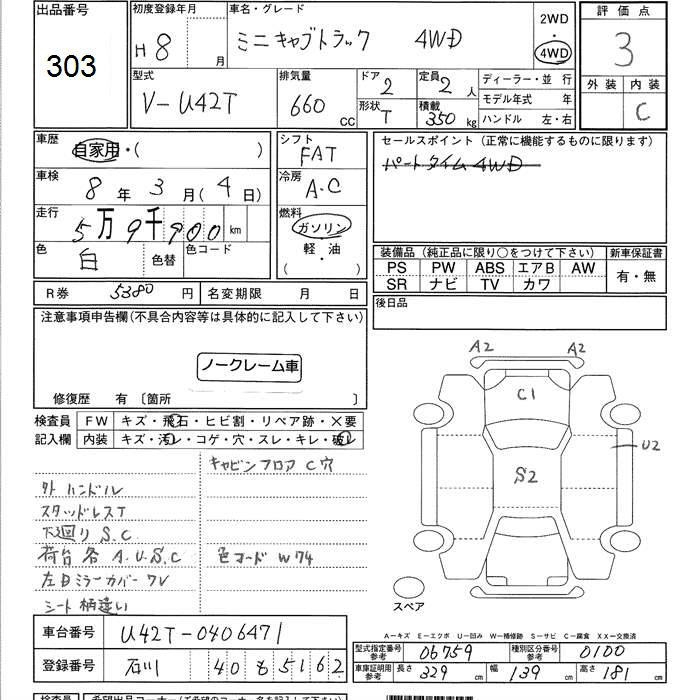 出品番号
303
初度登録年月
H 8 月
車名・グレード
ミニキャブトラック 4WD
2WD
4WD
評価点
3
外装 内装
C
型式
V-U42T
排気量
660 CC
ドア
2
形状
T
定員
2 人
積載
350 kg
ディーラー・並行
モデル年式 年
ハンドル 左・右
車歴
自家用・( )
車検
8 年 3 月 ( 4 日 )
走行
5万9千900 km
色
白
色替
色コード
シフト
FAT
冷房
A.C
燃料
ガソリン
軽・油
( )
セールスポイント (正常に機能するものに限ります)
パートタイム4WD
装備品 (純正品に限り○をつけて下さい)
新車保証書
PS PW ABS エアB AW
SR ナビ TV カワ
有・無
後日品
R券 5380 円
名変期限 月 日
注意事項申告欄(不具合内容等は具体的に記入して下さい)
ノークレーム車
修復歴 有 〔箇所 〕
検査員
記入欄
FW キズ・飛石・ヒビ割・リペア跡・×要
内装 キズ・汚レ・コゲ・穴・スレ・キレ・破レ
キャビンフロア C穴
外 ハンドル
スタッドレスT
下廻り S.C
荷台 各 A.U.S.C
色コード W74
左Dミラーカバー ワレ
シート柄違い
A2 A2
C1
U2
S2
スペア
A-キズ E-エクボ U-凹み W-補修跡 S-サビ C-腐食 XX-交換済
車台番号
U42T-0406471
登録番号
石川 40 も 5162
型式指定番号
参考
06759
種別区分番号
参考
0100
車庫証明用
参考
長さ 329 cm
幅 139 cm
高さ 181 cm
検査員
希望出品コーナー(ご希望のコーナー名を記入して下さい)